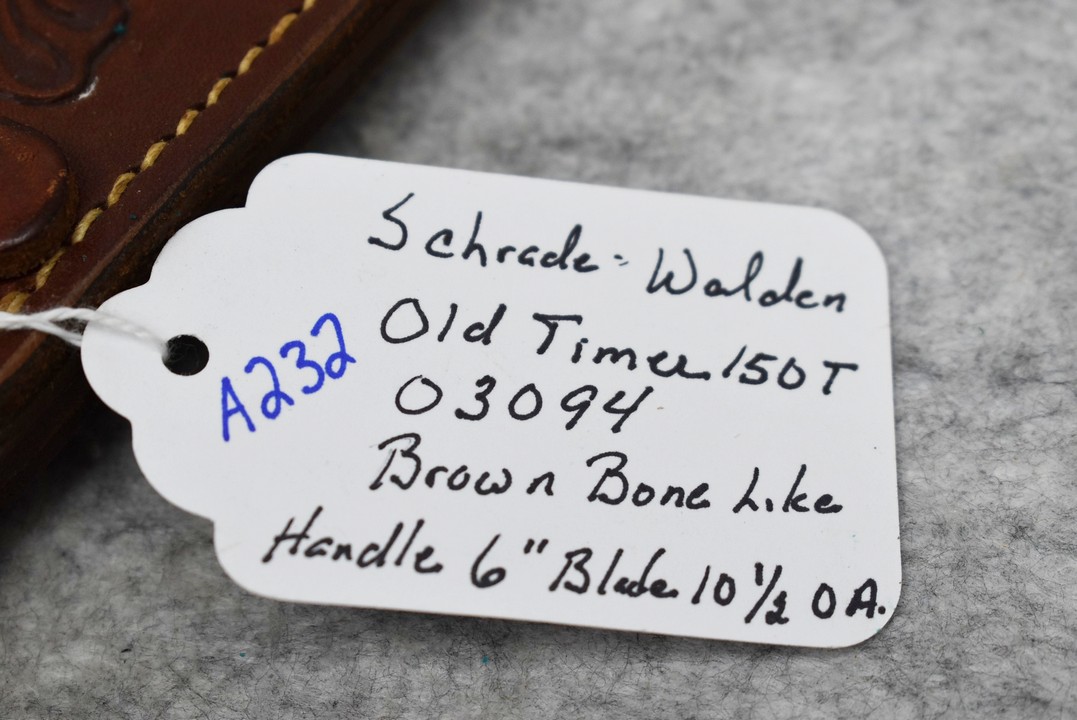 Schrade-Walden
Old Timer 150T
A232
03094
Brown Bone Like
Handle 6" Blade 10 1/2 OA.